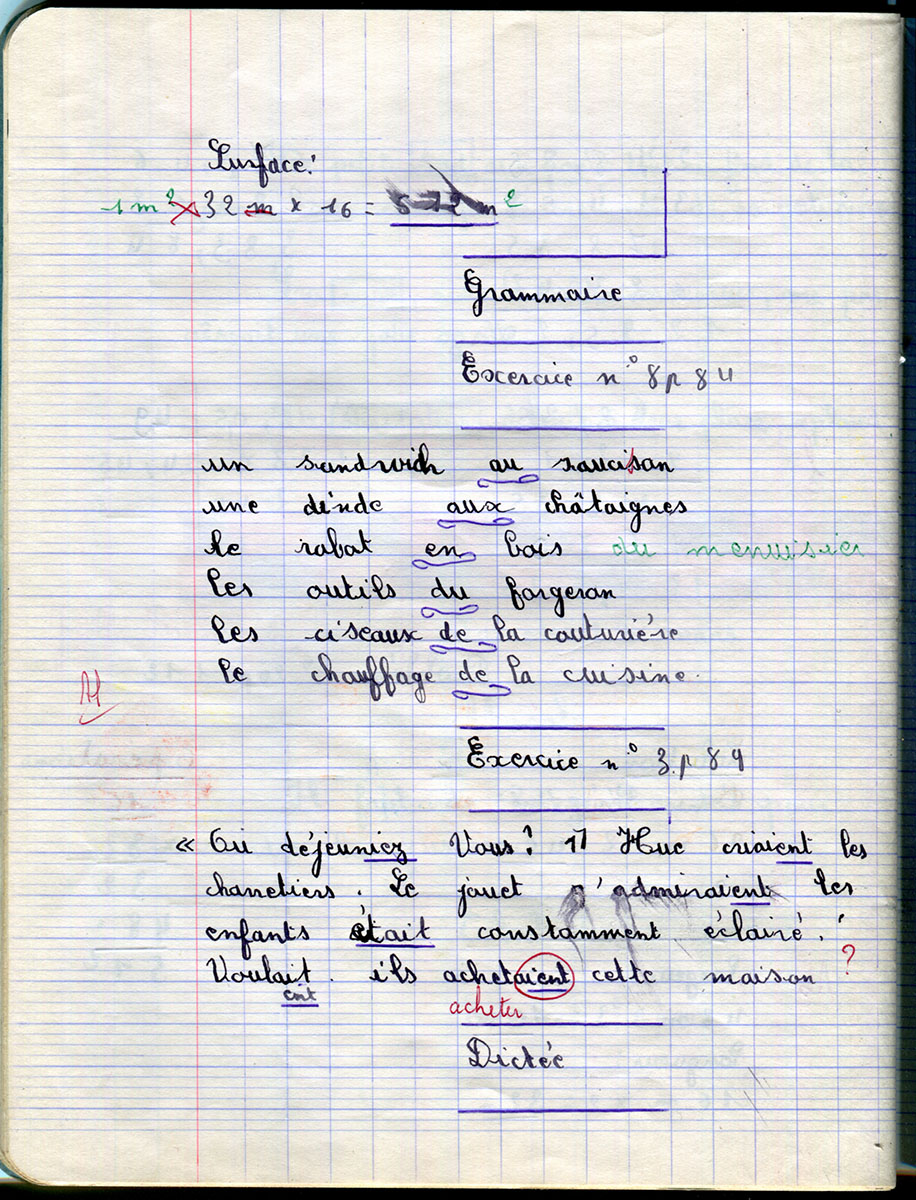 Surface:
1 m² × 32 m × 16 = 512 m²
Grammaire
Exercice n° 8 p 84
un sandwich au saucisson
une dinde aux châtaignes
le rabot en bois du menuisier
les outils du forgeron
les ciseaux de la couturière
le chauffage de la cuisine.
Exercice n° 3 p 89
« Où déjeuniez Vous? " Hue criaient les
charretiers. Le jouet qu'admiraient les
enfants était constamment éclairé.
Voulait ils achetaient cette maison ?
ent
acheter
Dictée